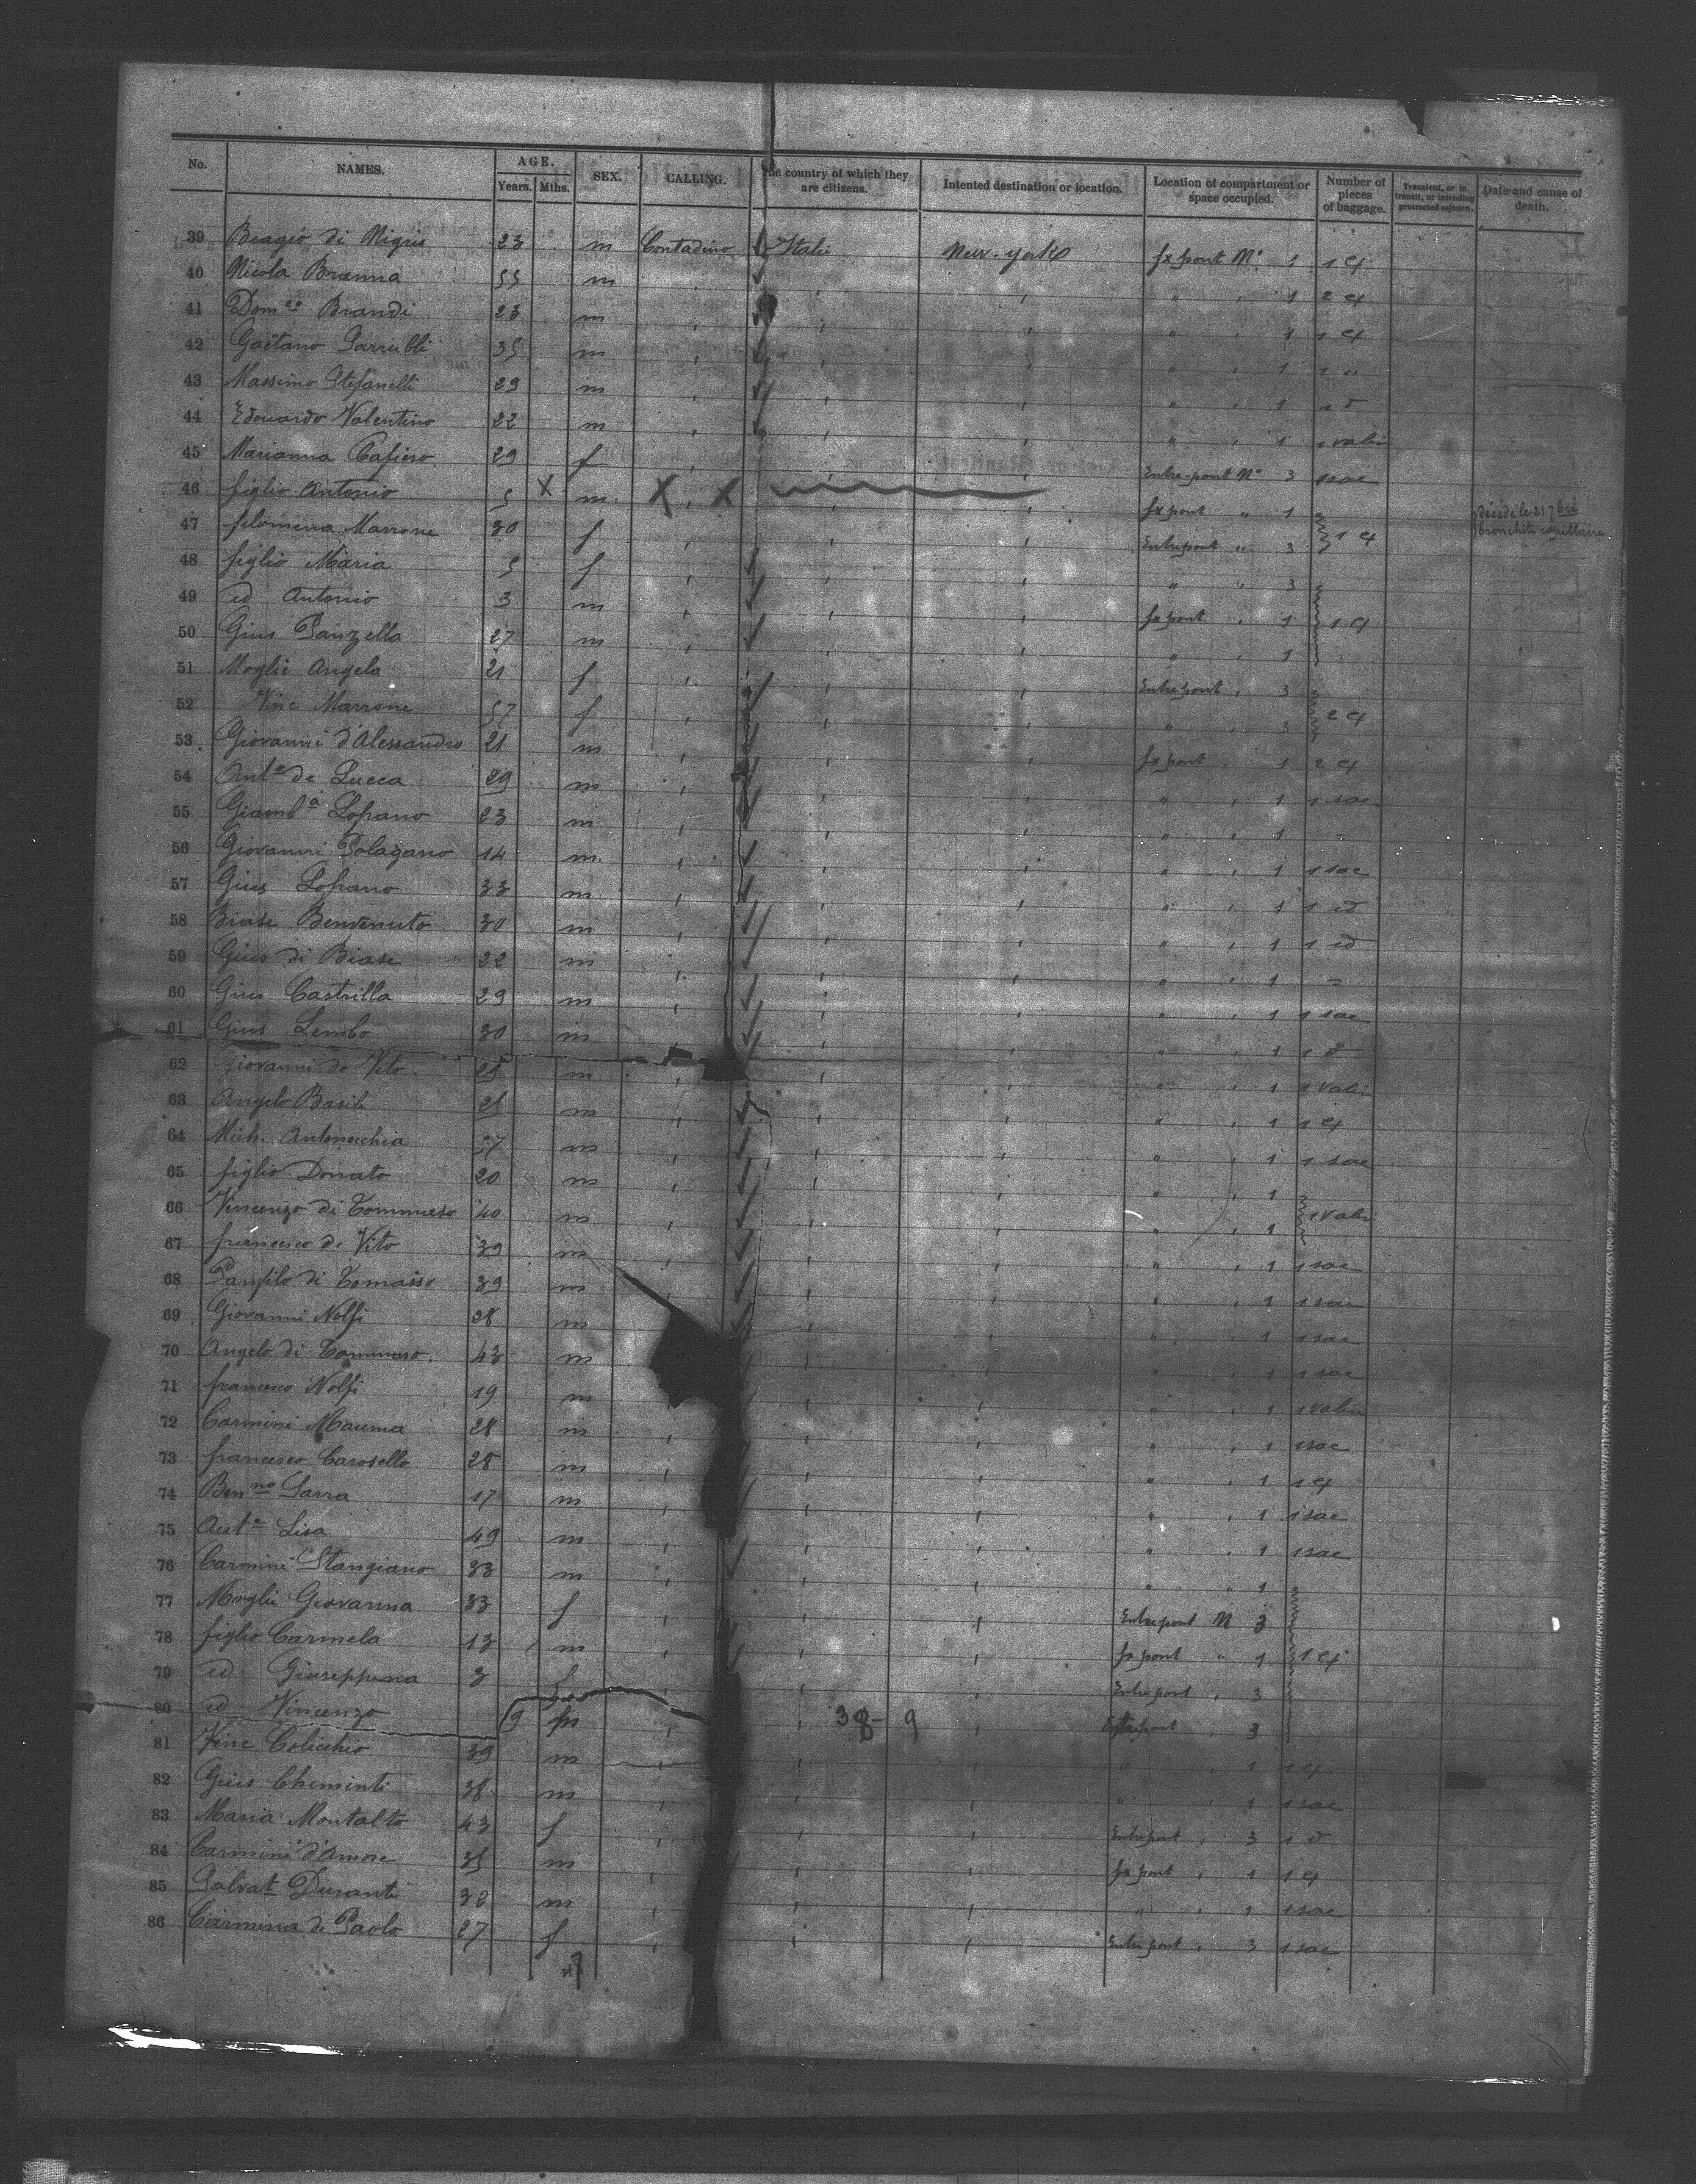 No. NAMES. AGE. Years. Mths. SEX. CALLING. The country of which they are citizens. Intented destination or location. Location of compartment or space occupied. Number of pieces of baggage. Transient, or in transit, or intending protracted sejourn. Date and cause of death.
39 Biagio di Nigris 23 m Contadino Italie New-york fx pont No 1 1 cf
40 Nicola Branna 55 m " 1 2 cf
41 Dom.co Brandi 23 m " 1 1 cf
42 Gaetano Sarrubbi 35 m " 1 1 "
43 Massimo Stefanelli 29 m " 1 1 d
44 Edouardo Valentino 22 m " 1 1 valis
45 Marianna Cafiero 29 f Entre-pont No 3 1 sac
46 figlio Antonio 5 X m X X fx pont " 1 Décédé le 21 7bre bronchite capillaire
47 filomena Marrone 30 f Entrepont " 3 1 cf
48 figlio Maria 5 f " 3
49 id Antonio 3 m fx pont 1 1 cf
50 Gius Panzella 27 m " 1
51 Moglie Angela 21 f Entrepont 3
52 Vinc Marrone 57 f " 3 2 cf
53 Giovanni d'Alessandro 21 m fx pont 1 2 cf
54 Anto de Lucca 29 m " 1 1 sac
55 Giamba Lofrano 23 m " 1
56 Giovanni Polagano 14 m " 1 1 sac
57 Gius Lofrano 33 m " 1 1 id
58 Biase Benvenuto 30 m " 1 1 id
59 Gius di Biase 22 m " 1 =
60 Gius Castrilla 29 m " 1 1 sac
61 Gius Lembo 30 m " 1 1 d
62 Giovanni de Vito 25 m " 1 1 valis
63 Angelo Basile 25 m " 1 1 cf
64 Mich. Antonecchia 57 m " 1 1 sac
65 figlio Donato 20 m " 1
66 Vincenzo di Tommaso 40 m " 1 1 valis
67 francesco de Vito 39 m " 1 1 sac
68 Panfilo di Tomaiso 39 m " 1 1 sac
69 Giovanni Nolfi 28 m " 1 1 sac
70 Angelo di Tommaso 43 m " 1 1 sac
71 francesco Nolfi 19 m " 1 1 valis
72 Carmini Mauma 28 m " 1 1 sac
73 francesco Carosello 28 m " 1 1 cf
74 Ben.no Sarra 17 m " 1 1 sac
75 Anto Lisa 49 m " 1 1 sac
76 Carmini Stangiano 33 m " 1
77 Moglie Giovanna 33 f Entrepont N 3
78 figlio Carmela 13 m fx pont " 1 1 cf
79 id Giuseppina 3 f Entrepont 3
80 id Vincenzo 9 m 38-9 Entrepont 3
81 Vinc Colicchio 39 m " 1 1 cf
82 Gius Chiminti 38 m " 1 1 sac
83 Maria Montalto 43 f Entrepont 3 1 d
84 Carmine d'Amore 35 m fx pont 1 1 cf
85 Salvat. Duranti 32 m " 1 1 sac
86 Carmina di Paolo 27 f Entrepont 3 1 sac